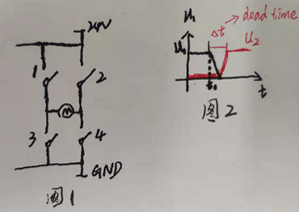 24V
1
2
M
3
4
GND
图1
U₁
Δt
dead time
U₀
U₂
t₀
t
图2